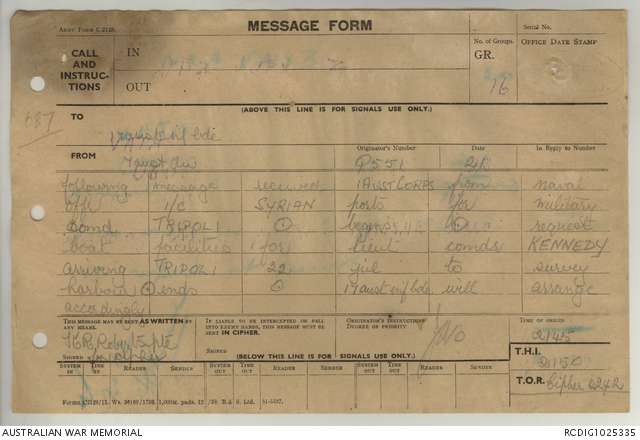 MESSAGE FORM
ARMY FORM C.2128.
Serial No.
CALL AND INSTRUC-TIONS
IN
OUT
No. of Groups.
GR.
76
OFFICE DATE STAMP
(ABOVE THIS LINE IS FOR SIGNALS USE ONLY.)
687
TO
17 aust inf bde
FROM
7 aust div
Originator's Number
G551
Date
21
In Reply to Number
following message received 1AUSTCORPS from naval
offr i/c SYRIAN ports for military
comd TRIPOLI begins request
boat facilities for lieut comds KENNEDY
arriving TRIPOLI 22 jul to survey
harbour ends 17 aust inf bde will arrange
accordingly
THIS MESSAGE MAY BE SENT AS WRITTEN BY ANY MEANS.
IF LIABLE TO BE INTERCEPTED OR FALL INTO ENEMY HANDS, THIS MESSAGE MUST BE SENT IN CIPHER.
ORIGINATOR'S INSTRUCTIONS
DEGREE OF PRIORITY.
TIME OF ORIGIN
2145
SIGNED
SIGNED
(BELOW THIS LINE IS FOR SIGNALS USE ONLY.)
T.H.I.
2150
SYSTEM IN
TIME IN
READER
SENDER
SYSTEM OUT
TIME OUT
READER
SENDER
SYSTEM OUT
TIME OUT
READER
SENDER
T.O.R.
Cipher 0242
AUSTRALIAN WAR MEMORIAL
RCDIG1025335